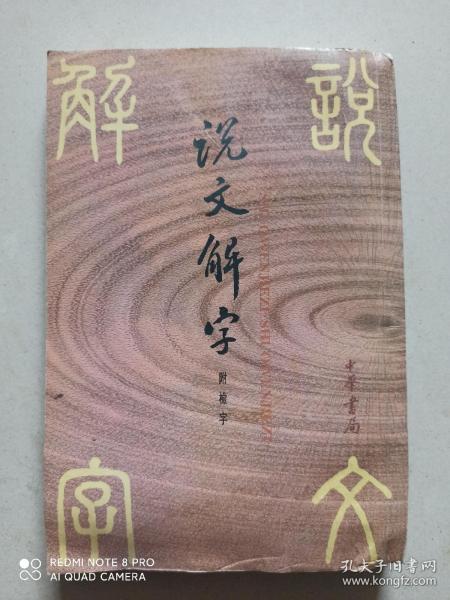 說
文
解
字
说文解字
附检字
SHUOWENJIEZI SHUOWENJIEZI
中华书局
REDMI NOTE 8 PRO
AI QUAD CAMERA
孔夫子旧书网
www.kongfz.com